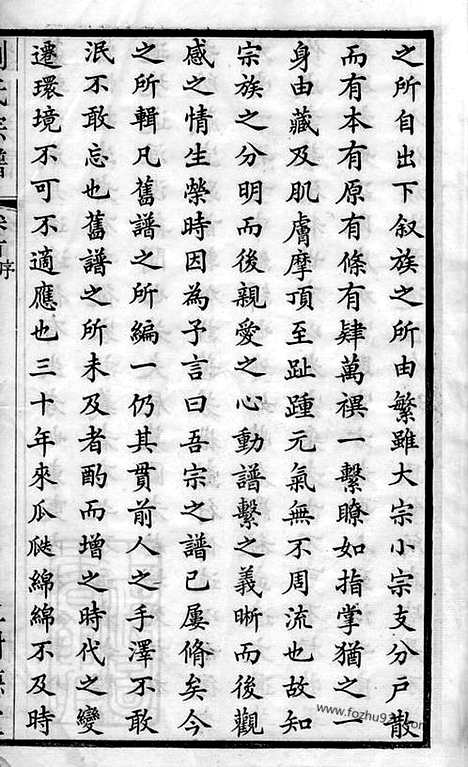 之所自出下叙族之所由繁雖大宗小宗支分戶散
而有本有原有條有肆萬禩一繫瞭如指掌猶之一
身由藏及肌膚摩頂至趾踵元氣無不周流也故知
宗族之分明而後親愛之心動譜繫之義晰而後觀
感之情生榮時因為予言曰吾宗之譜已屢脩矣今
之所輯凡舊譜之所編一仍其貫前人之手澤不敢
泯不敢忘也舊譜之所未及者酌而增之時代之變
遷環境不可不適應也三十年來瓜瓞綿綿不及時
氏宗譜
序
www.fozhu920.com